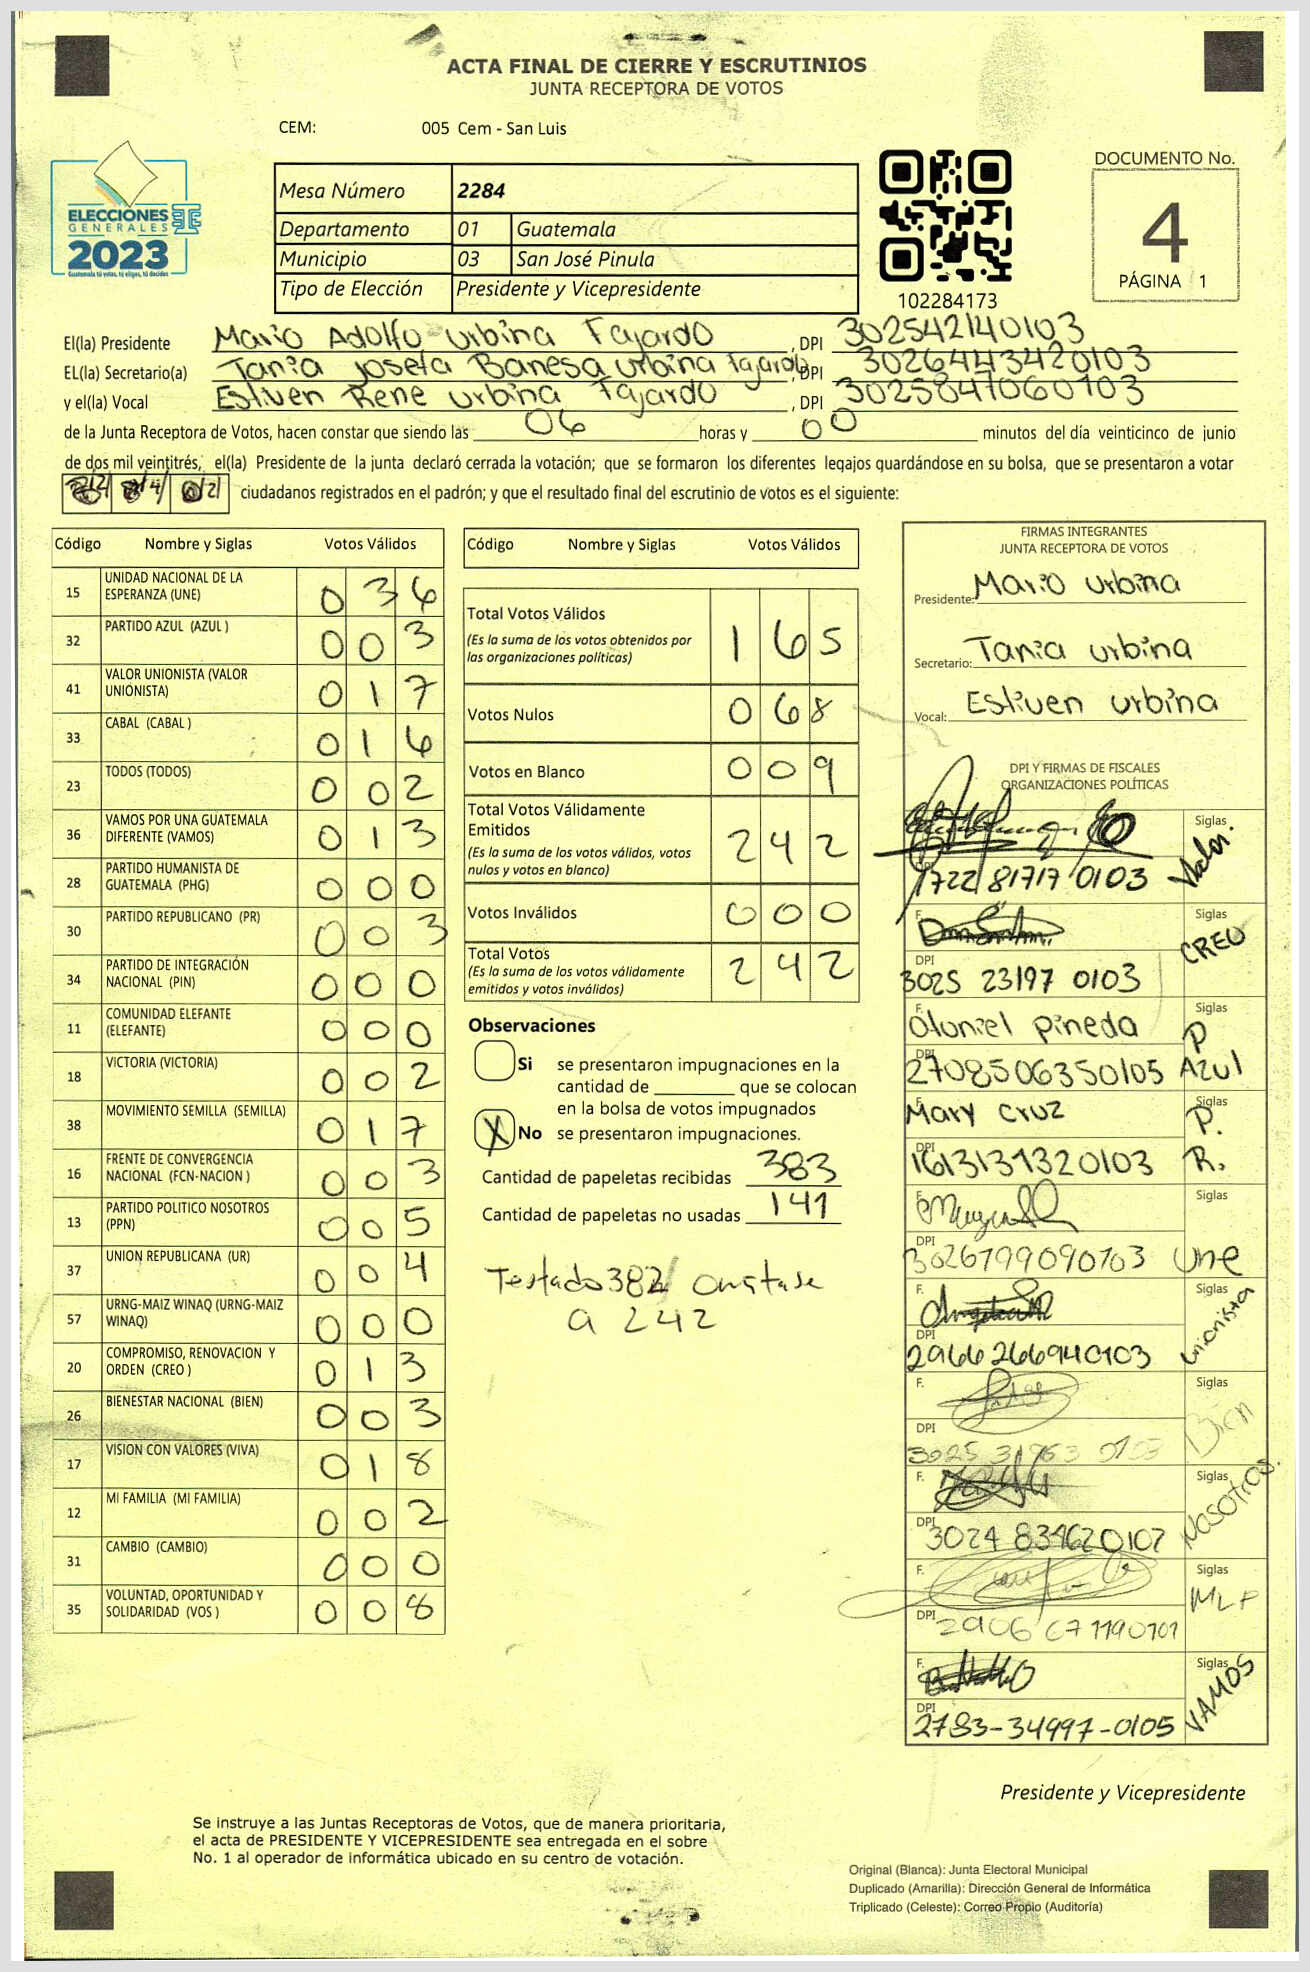 ACTA FINAL DE CIERRE Y ESCRUTINIOS
JUNTA RECEPTORA DE VOTOS
CEM: 005 Cem - San Luis
ELECCIONES
GENERALES
2023
Guatemala tú votas, tú eliges, tú decides
Mesa Número 2284
Departamento 01 Guatemala
Municipio 03 San José Pinula
Tipo de Elección Presidente y Vicepresidente
102284173
DOCUMENTO No.
4
PÁGINA 1
El(la) Presidente Mario Adolfo Urbina Fajardo, DPI 302542140103
EL(la) Secretario(a) Tania Josefa Banesa Urbina Fajardo, DPI 3026443420103
y el(la) Vocal Estiven Rene Urbina Fajardo, DPI 3025847060103
de la Junta Receptora de Votos, hacen constar que siendo las 06 horas y 00 minutos del día veinticinco de junio
de dos mil veintitrés, el(la) Presidente de la junta declaró cerrada la votación; que se formaron los diferentes legajos guardándose en su bolsa, que se presentaron a votar
2 4 2 ciudadanos registrados en el padrón; y que el resultado final del escrutinio de votos es el siguiente:
Código Nombre y Siglas Votos Válidos
15 UNIDAD NACIONAL DE LA ESPERANZA (UNE) 0 3 6
32 PARTIDO AZUL (AZUL ) 0 0 3
41 VALOR UNIONISTA (VALOR UNIONISTA) 0 1 7
33 CABAL (CABAL ) 0 1 6
23 TODOS (TODOS) 0 0 2
36 VAMOS POR UNA GUATEMALA DIFERENTE (VAMOS) 0 1 3
28 PARTIDO HUMANISTA DE GUATEMALA (PHG) 0 0 0
30 PARTIDO REPUBLICANO (PR) 0 0 3
34 PARTIDO DE INTEGRACIÓN NACIONAL (PIN) 0 0 0
11 COMUNIDAD ELEFANTE (ELEFANTE) 0 0 0
18 VICTORIA (VICTORIA) 0 0 2
38 MOVIMIENTO SEMILLA (SEMILLA) 0 1 7
16 FRENTE DE CONVERGENCIA NACIONAL (FCN-NACION ) 0 0 3
13 PARTIDO POLITICO NOSOTROS (PPN) 0 0 5
37 UNION REPUBLICANA (UR) 0 0 4
57 URNG-MAIZ WINAQ (URNG-MAIZ WINAQ) 0 0 0
20 COMPROMISO, RENOVACION Y ORDEN (CREO ) 0 1 3
26 BIENESTAR NACIONAL (BIEN) 0 0 3
17 VISION CON VALORES (VIVA) 0 1 8
12 MI FAMILIA (MI FAMILIA) 0 0 2
31 CAMBIO (CAMBIO) 0 0 0
35 VOLUNTAD, OPORTUNIDAD Y SOLIDARIDAD (VOS ) 0 0 8
Código Nombre y Siglas Votos Válidos
Total Votos Válidos 1 6 5
(Es la suma de los votos obtenidos por
las organizaciones políticas)
Votos Nulos 0 6 8
Votos en Blanco 0 0 9
Total Votos Válidamente
Emitidos 2 4 2
(Es la suma de los votos válidos, votos
nulos y votos en blanco)
Votos Inválidos 0 0 0
Total Votos 2 4 2
(Es la suma de los votos válidamente
emitidos y votos inválidos)
Observaciones
Si se presentaron impugnaciones en la
cantidad de ________ que se colocan
en la bolsa de votos impugnados
X No se presentaron impugnaciones.
Cantidad de papeletas recibidas 383
Cantidad de papeletas no usadas 141
Testado 382 
a 242
FIRMAS INTEGRANTES
JUNTA RECEPTORA DE VOTOS
Presidente: Mario Urbina
Secretario: Tania Urbina
Vocal: Estiven Urbina
DPI Y FIRMAS DE FISCALES
ORGANIZACIONES POLÍTICAS
Siglas Valor.
DPI 1722 81717 0103
F. Siglas CREO
DPI 3025 23197 0103
F. Otoniel Pineda Siglas P Azul
DPI 2708506350105
F. Mary Cruz Siglas P. R.
DPI 1613131320103
F. Siglas Une
DPI 3026799090103
F. Siglas Unionista
DPI 2966266940103
F. Siglas Bien
DPI 3025 0103
F. Siglas Nosotros.
DPI 3024 834620102
F. Siglas MLP
DPI 2906 67
F. Siglas VAMOS
DPI 2783-34997-0105
Presidente y Vicepresidente
Se instruye a las Juntas Receptoras de Votos, que de manera prioritaria,
el acta de PRESIDENTE Y VICEPRESIDENTE sea entregada en el sobre
No. 1 al operador de informática ubicado en su centro de votación.
Original (Blanca): Junta Electoral Municipal
Duplicado (Amarilla): Dirección General de Informática
Triplicado (Celeste): Correo Propio (Auditoría)